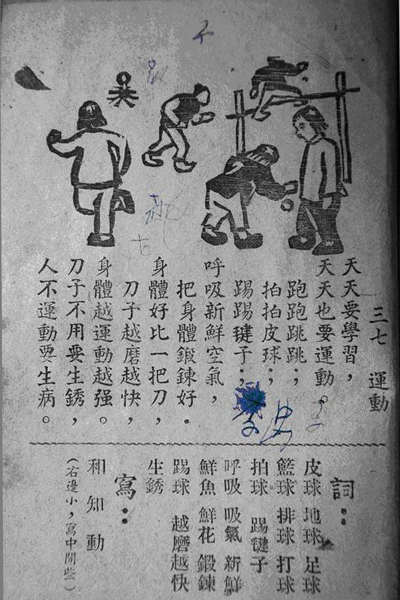 三七 運動
天天要學習，
天天也要運動。
跑跑跳跳，
拍拍皮球，
踢踢毽子；
呼吸新鮮空氣，
把身體鍛鍊好。
身體好比一把刀，
刀子越磨越快，
身體越運動越强。
刀子不用要生銹，
人不運動要生病。
詞：
皮球 地球 足球
籃球 排球 打球
拍球 踢毽子
呼吸 吸氣 新鮮
鮮魚 鮮花 鍛鍊
踢球 越磨越快
生銹
寫：
和 知 動
（右邊小，寫中間些）